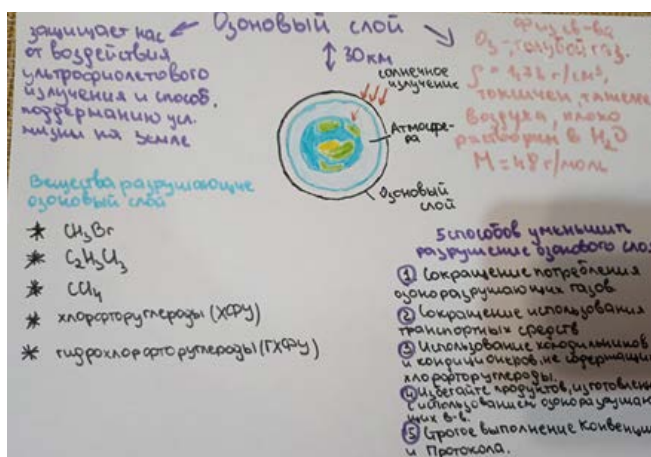 Озоновый слой
защищает нас
от воздействия
ультрафиолетового
излучения и способ.
поддержанию усл.
жизни на земле
30 км
солнечное
излучение
Атмосфе-
ра
Озоновый
слой
Физ св-ва
O₃ - голубой газ.
токсичен, тяжелее
воздуха, плохо
растворим в H₂O
M = 48 г/моль
Вещества разрушающие
озоновый слой
* CH₃Br
* C₂H₃Cl₃
* CCl₄
* хлорфторуглероды (ХФУ)
* гидрохлорфторуглероды (ГХФУ)
5 способов уменьшить
разрушение озонового слоя
1 Сокращение потребления
озоноразрушающих газов
2 Сокращение использования
транспортных средств
3 Использование холодильников
и кондиционеров, не содержащи
хлорфторуглероды.
4 Избегайте продуктов, изготовленн
с использованием озоноразрушаю
щих в-в.
5 Строгое выполнение Конвенци
и Протокола.